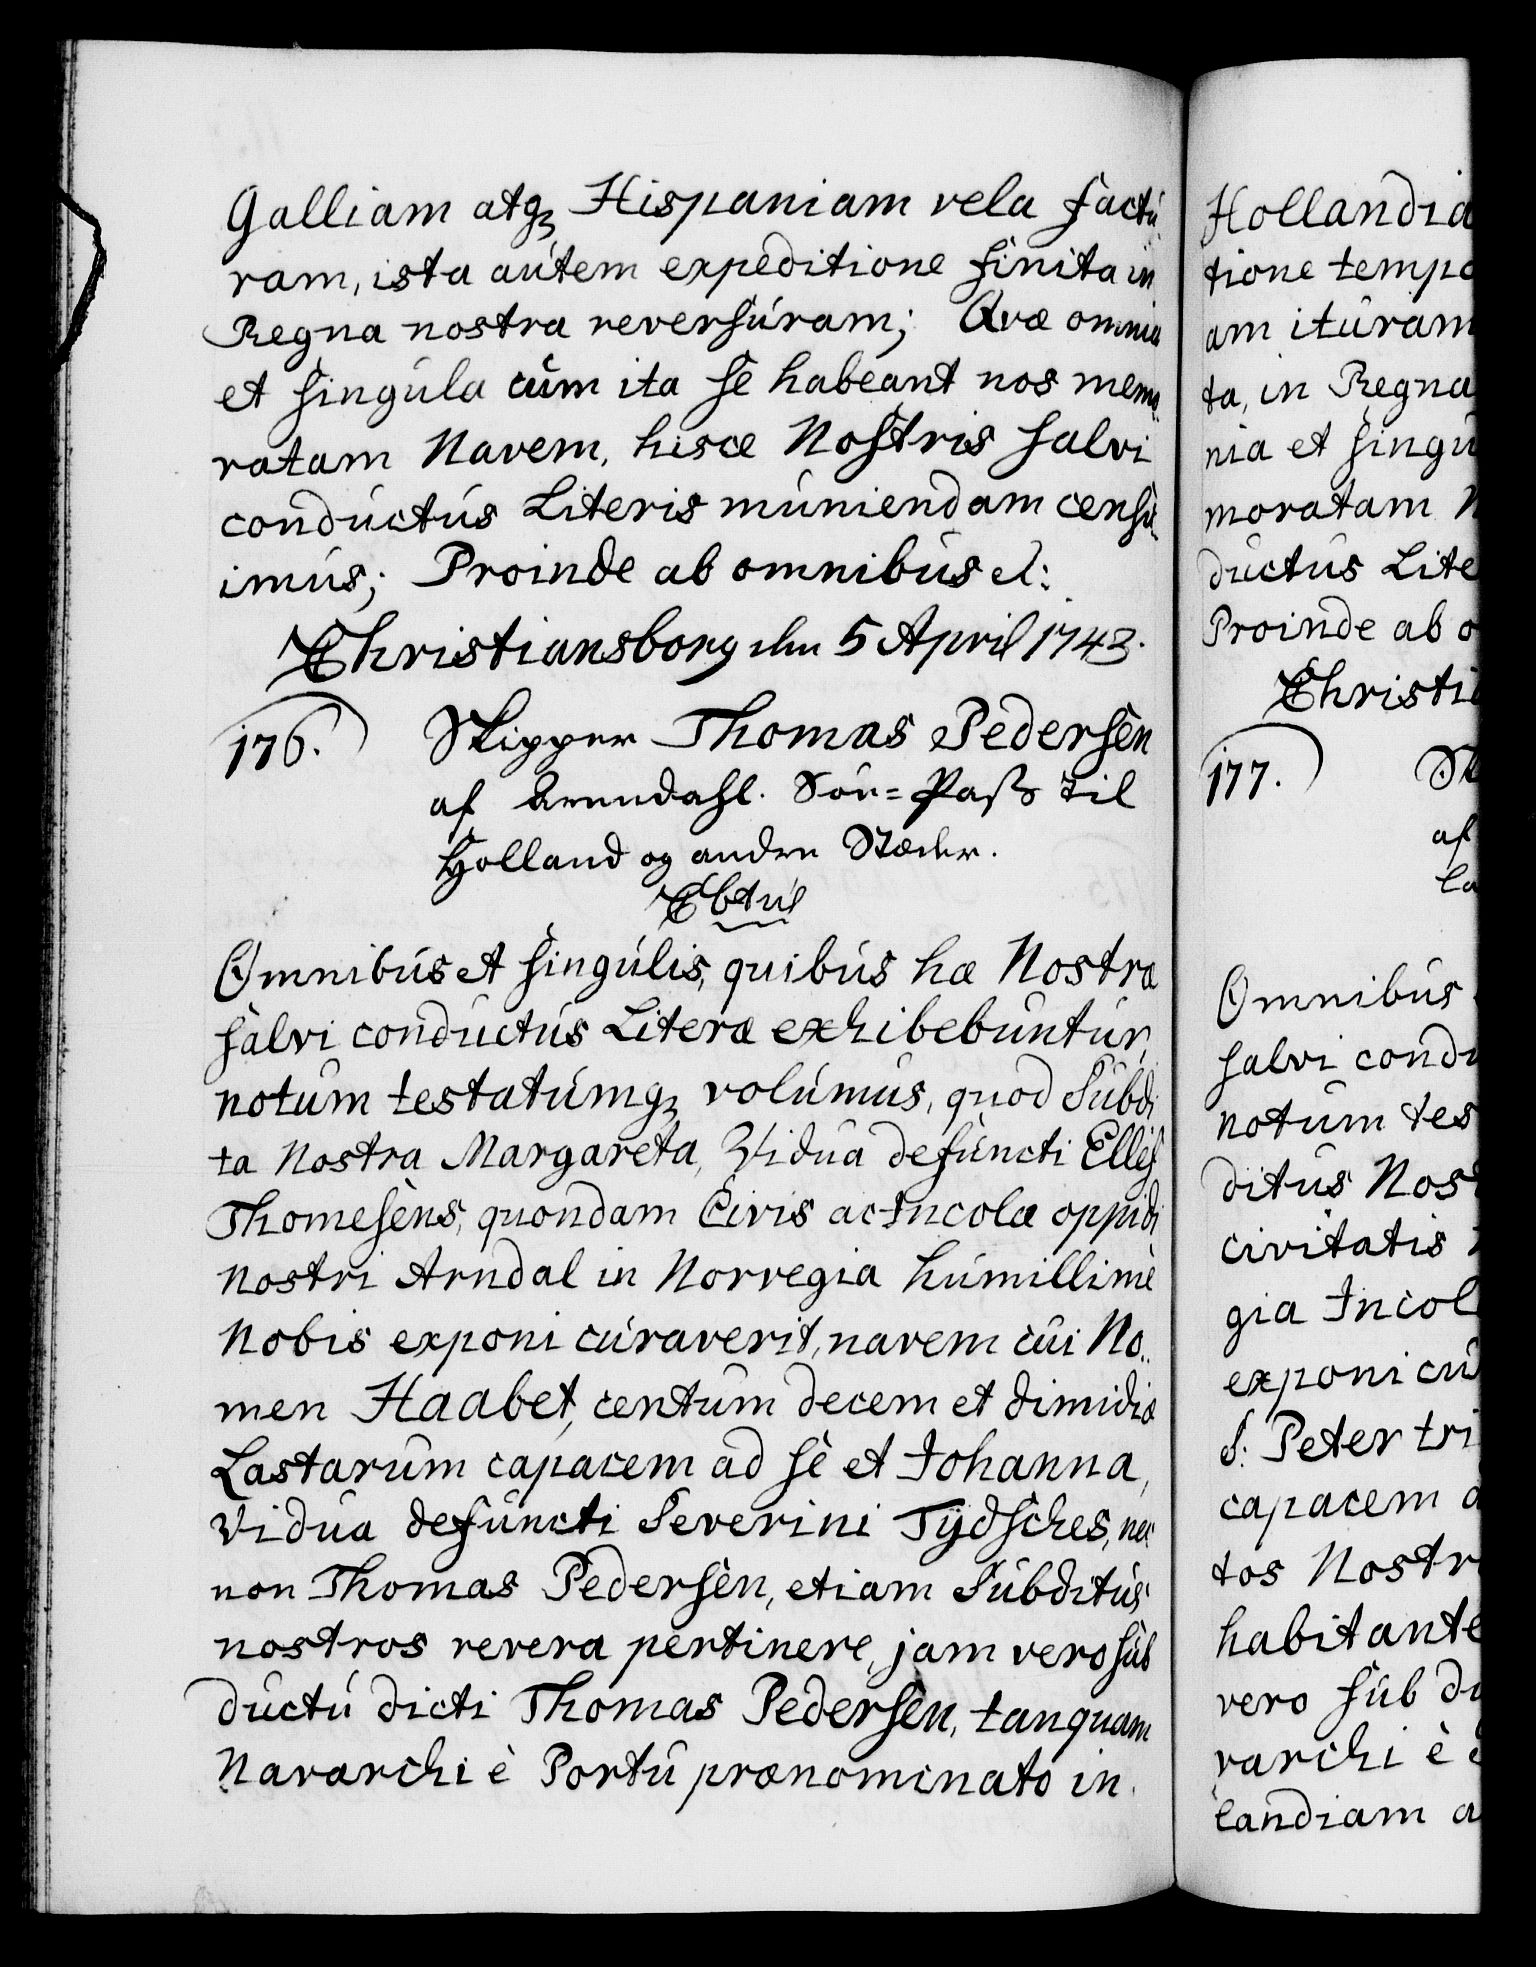 Galliam atqꝫ Hispaniam vela factu
ram, ista autem expeditione finita in
Regna nostra reversuram; Qvæ omnia
et singula cum ita se habeant nos memo
ratam Navem, hisce Nostris salvi
conductus Literis muniendam censu
imus; Proinde ab omnibus et:
Christiansborg den 5 April 1743.
176. Skipper Thomas Pedersen
af Arendahl. Söe=Pass til
Holland og andre Stæder.
Omnibus et singulis, quibus hæ Nostræ
salvi conductus Literæ exhibebuntur,
notum testatumqꝫ volumus, quod Subdi
ta Nostra Margareta, Vidua defuncti Ellef
Thomesens, quondam Civis ac Incolæ oppidi
Nostri Arndal in Norvegia humillimè
Nobis exponi curaverit, navem cui No..
men Haabet, centum decem et dimidiæ
Lastarum capacem ad se et Johanna,
Vidua defuncti Severini Tÿdsches, nec
non Thomas Pedersen, etiam Subditus
nostros revera pertinere, jam vero sub
ductu dicti Thomas Pedersen, tanquam
Navarchi è Portu prænominato in
Hollandia
tione tempo
am ituram
ta, in Regna
nia et singu
moratam N
ductus Lite
Proinde ab o
Christia
177. Sk
af
La
Omnibus
salvi condu
notum tes
ditus Nost
civitatis
gia Incol
exponi cu
S: Peter tri
capacem a
tos Nostr
habitante
vero sub du
varchi è
landiam a